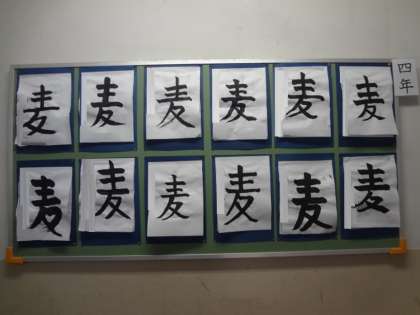 四年
麦 麦 麦 麦 麦 麦
麦 麦 麦 麦 麦 麦